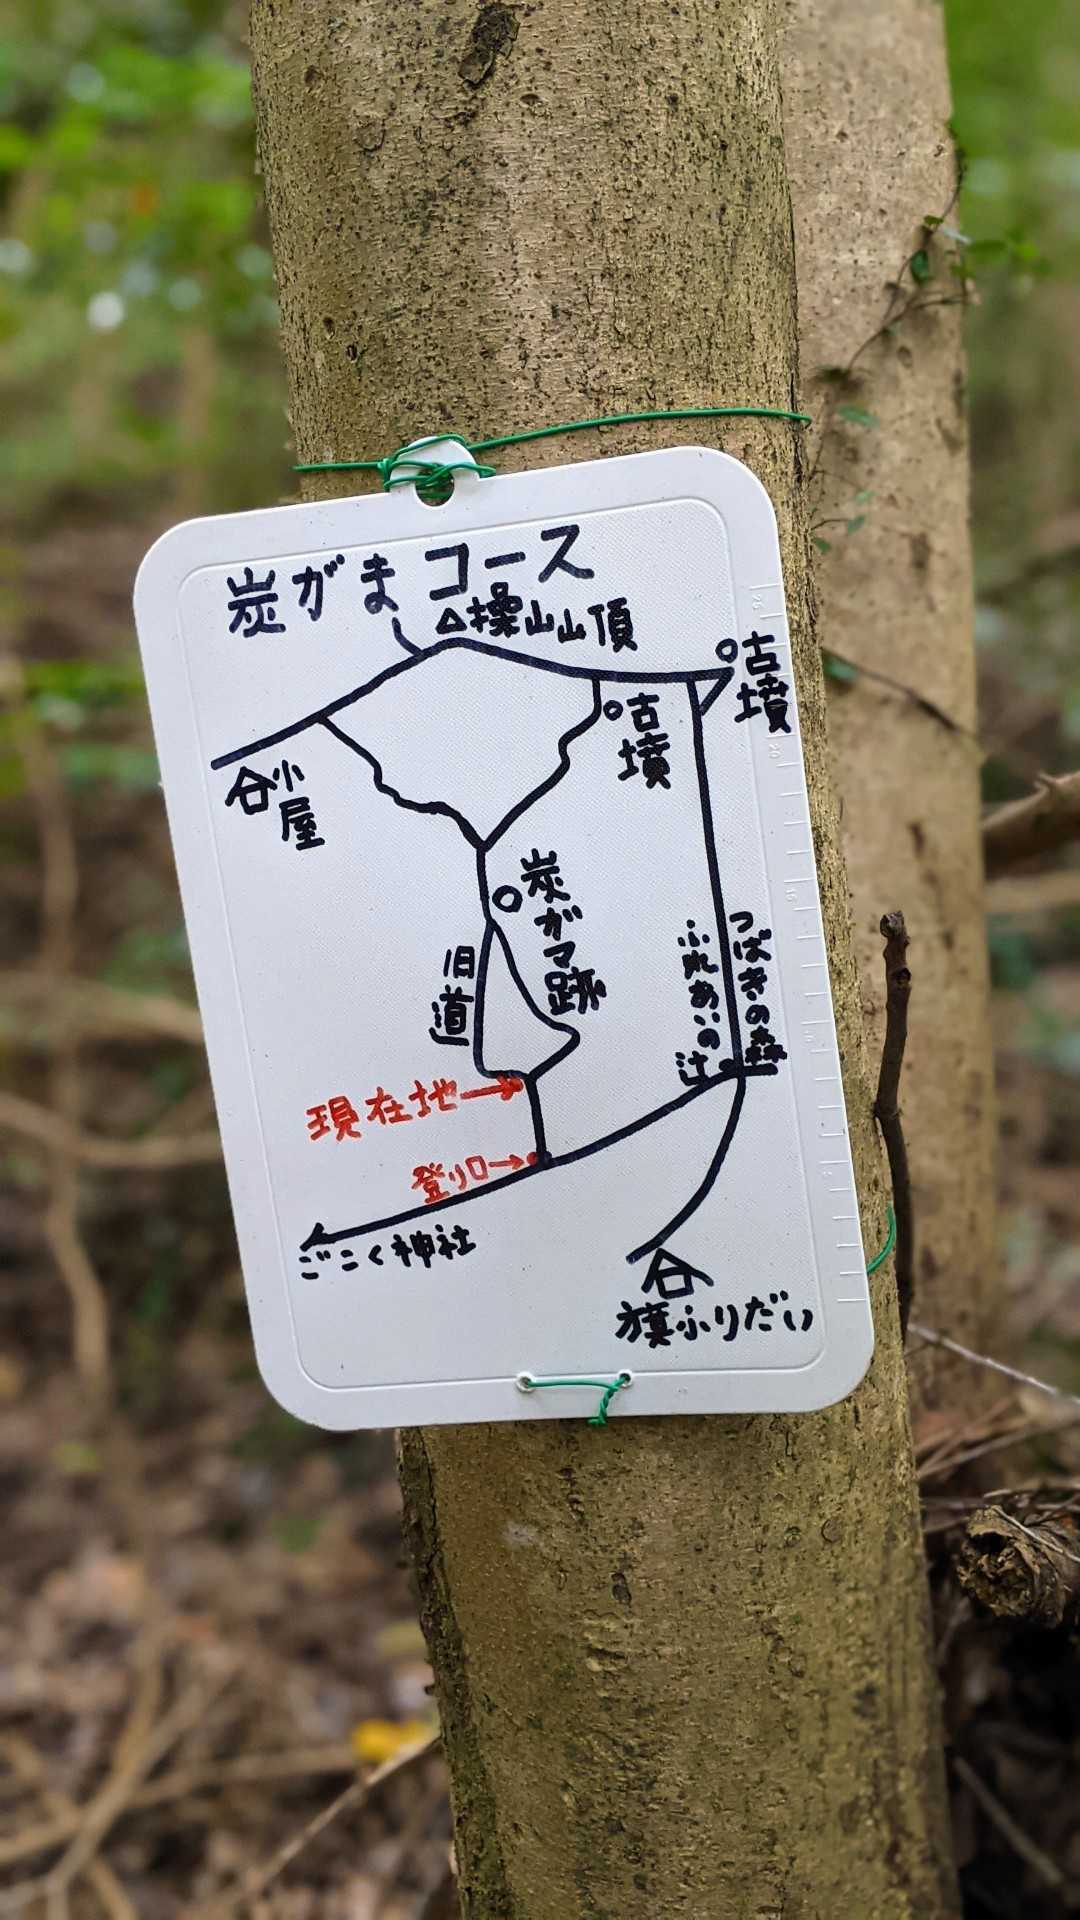 炭がまコース
△操山山頂
古墳
古墳
小屋
炭ガマ跡
旧道
ふれあいの辻
つばきの森
現在地
登り口
ごこく神社
旗ふりだい